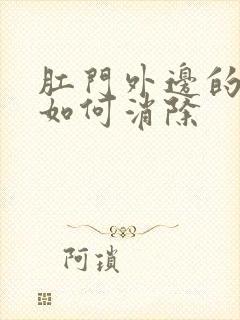 肛門外邊的
如何消除
阿瑣